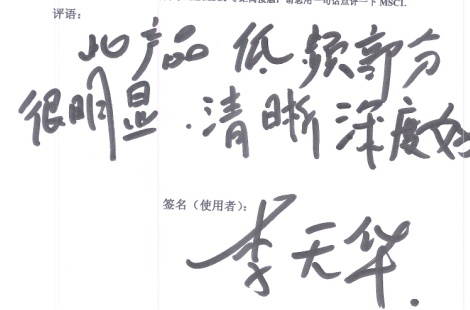 请您用一句话点评一下 MSCI.
评语:
此产品 低频部分
很明显.清晰 深度好
签名(使用者):
李天华.